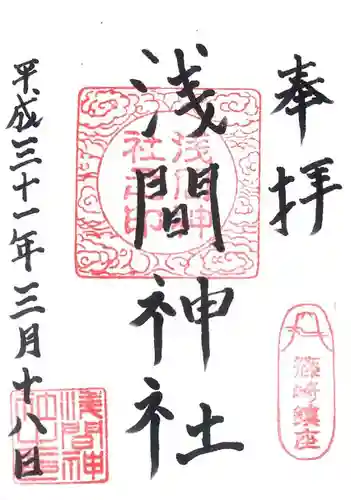 奉拝
浅間神社
浅間神
社之印
篠崎鎮座
平成三十一年三月十八日
浅間神